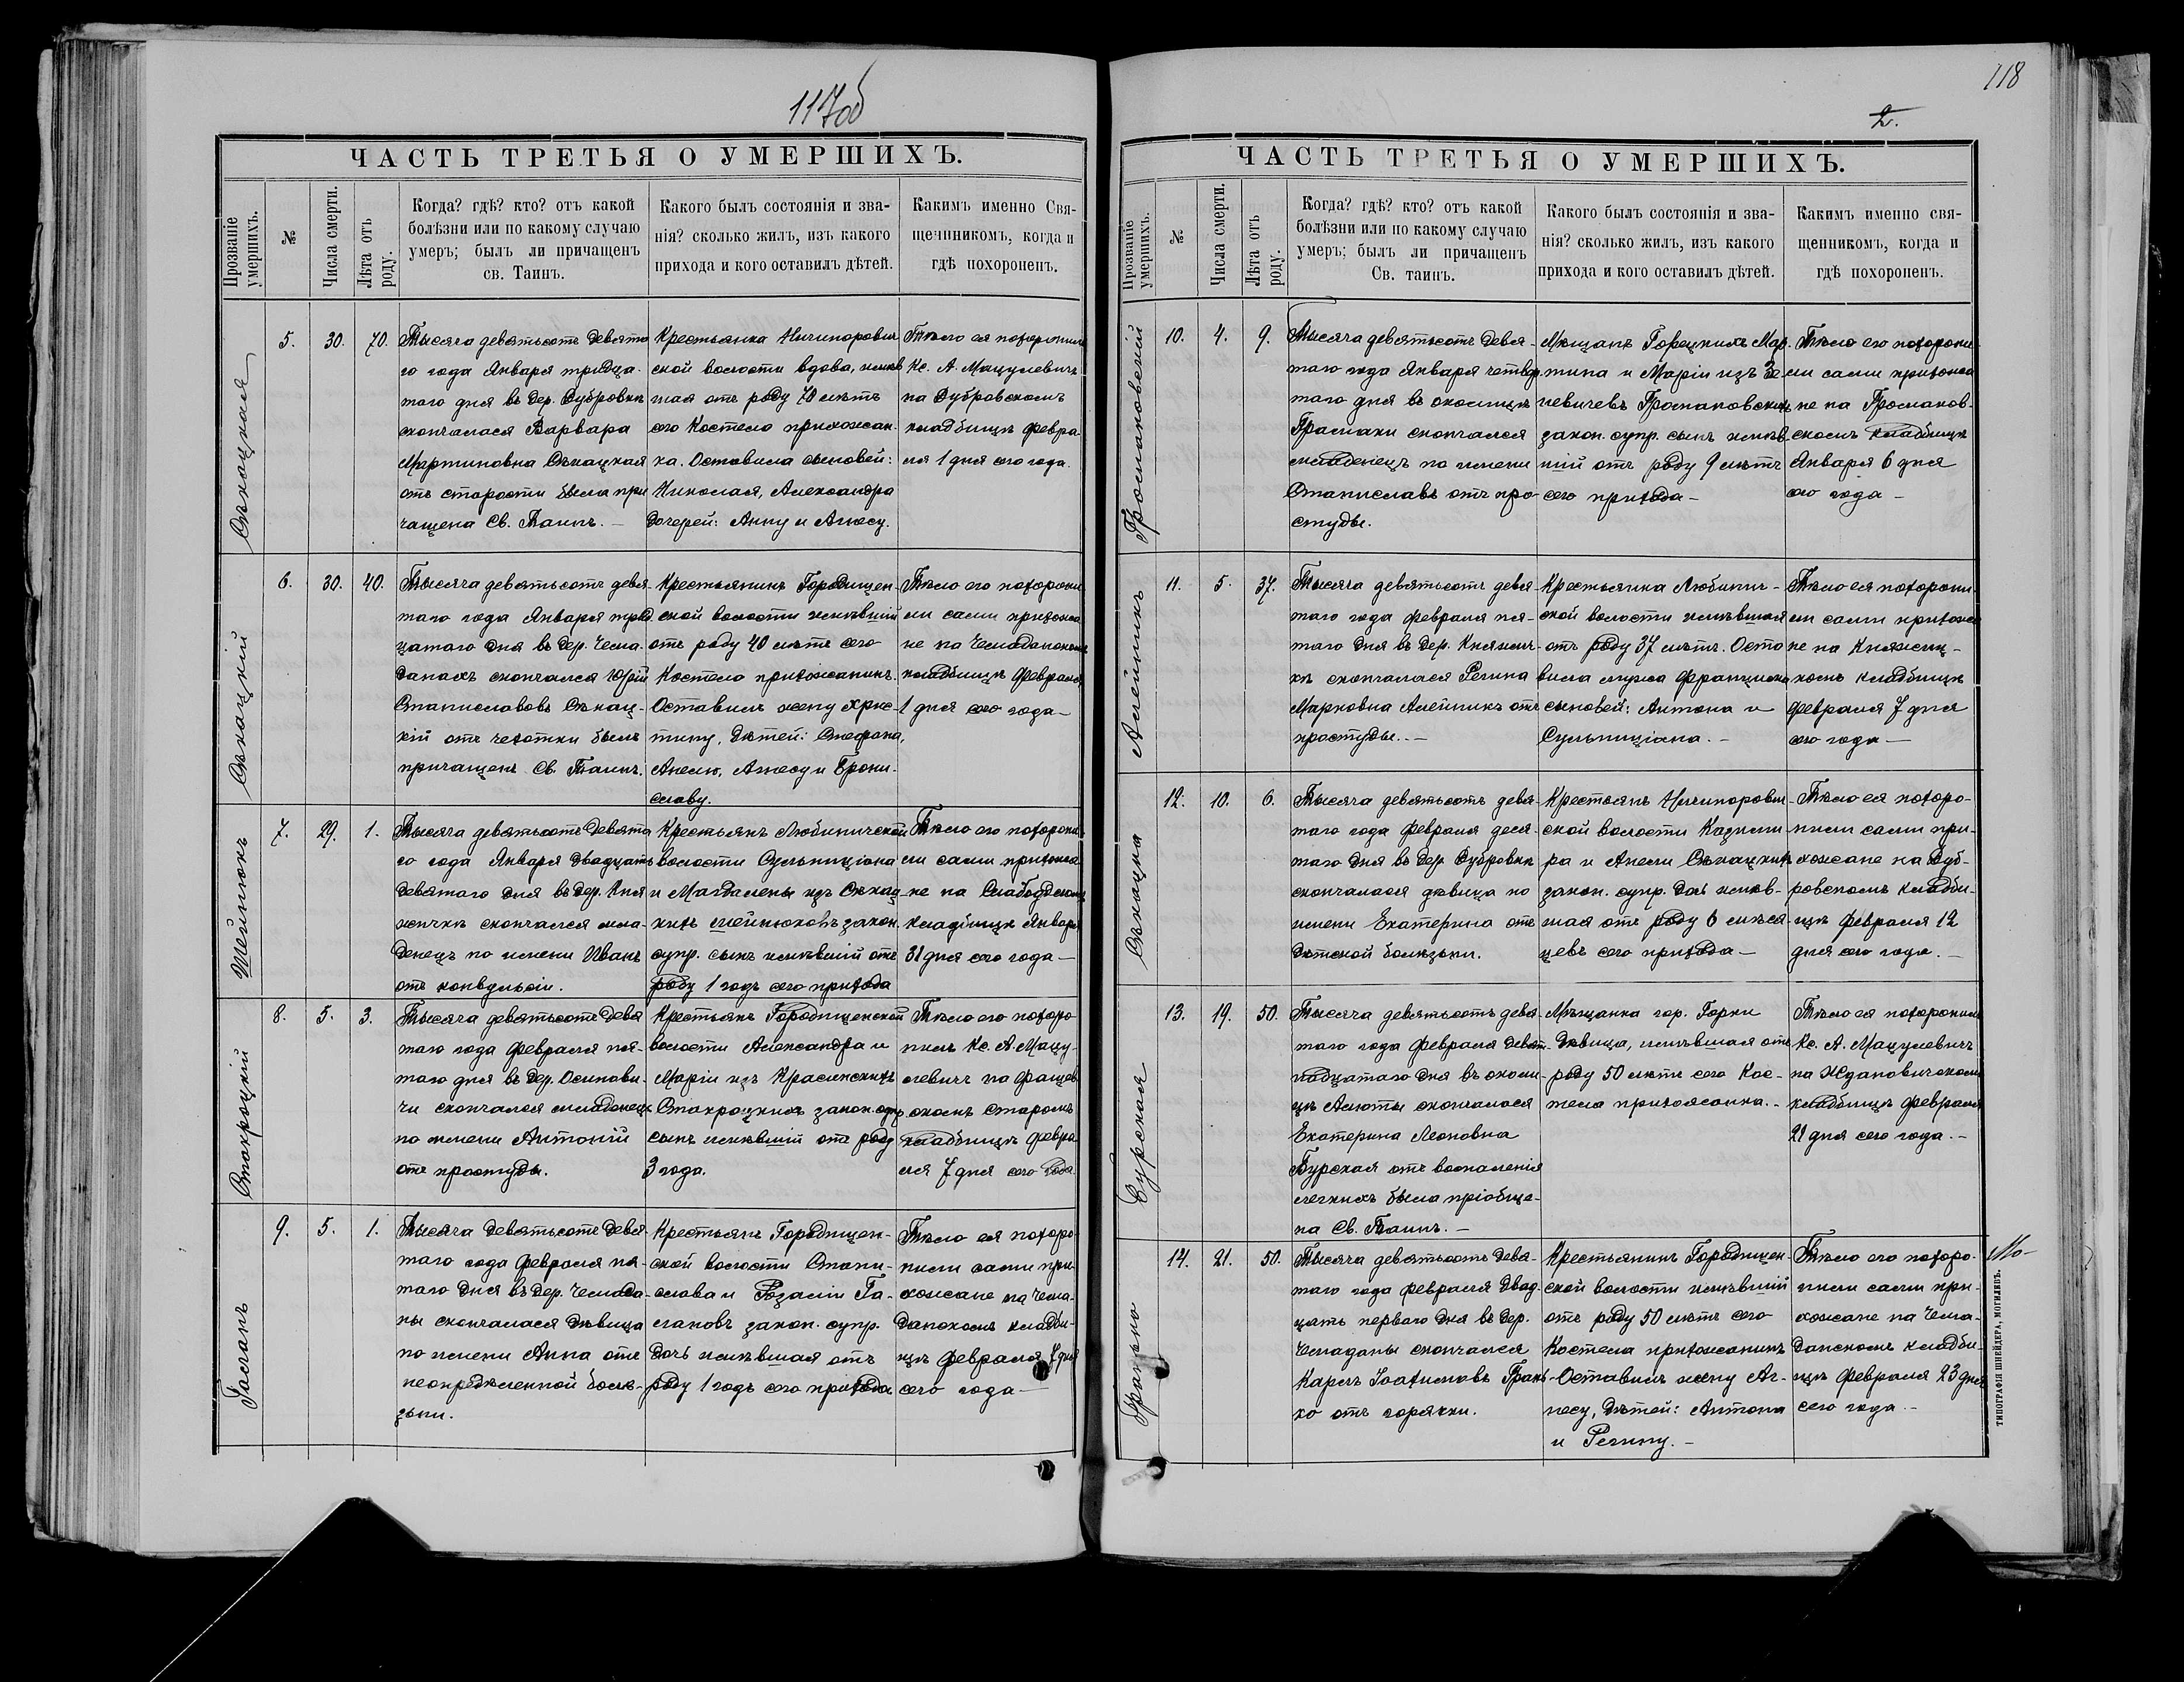 117об
ЧАСТЬ ТРЕТЬЯ О УМЕРШИХЪ.
Прозваніе умершихъ.
№
Числа смерти.
Лѣта отъ роду.
Когда? гдѣ? кто? отъ какой
болѣзни или по какому случаю
умеръ; былъ ли причащенъ
св. Таинъ.
Какого былъ состоянія и зва-
нія? сколько жилъ, изъ какого
прихода и кого оставилъ дѣтей.
Какимъ именно Свя-
щенникомъ, когда и
гдѣ похороненъ.
5.
30.
70.
Тысяча девятьсотъ девято
го года Января тридца-
таго дня въ дер. Дубровкѣ
скончалася Варвара
Мартиновна Сѣкацкая
отъ старости была при
чащена Св. Таинъ. —
Крестьянка Ничипорович
ской волости вдова, жив
шая отъ роду 70 лѣтъ
сего Костела прихожан-
ка. Оставила сыновей:
Николая, Александра
дочерей: Анну и Агнесу.
Тѣло ея похоронил
Кс. А. Мацулевичъ
на Дубровскомъ
кладбищѣ Февра
ля 1 дня сего года.
Сѣкацкій
6.
30.
40.
Тысяча девятьсотъ девя
таго года Января трид
цатаго дня въ дер. Чема-
данахъ скончался Юрій
Станиславовъ Сѣкац-
кій отъ чахотки былъ
причащенъ Св. Таинъ.
Крестьянинъ Городищен-
ской волости жившій
отъ роду 40 лѣтъ сего
Костела прихожанинъ.
Оставилъ жену Хрис-
тину, дѣтей: Стефана,
Анелю, Агнесу и Брони-
славу.
Тѣло его похорони
ли сами прихожа
не на Чемаданском
кладбищѣ Февраля
1 дня сего года —
Шейпюкъ
7.
29.
1.
Тысяча девятьсотъ девята
го года Января двадцать
девятаго дня въ дер. Кня
жичкѣ скончался мла-
денецъ по имени Иванъ
отъ конвульсіи.
Крестьянъ Любиничской
волости Сульпиціона
и Магдалены изъ Сѣкац-
кихъ
супр. сынъ жившій отъ
роду 1 годъ сего прихода
Тѣло его похорони
ли сами прихожа
не на Слабодском
кладбищѣ Января
31 дня сего года —
8.
5.
3.
Тысяча девятьсотъ девя
таго года Февраля пя-
таго дня въ дер. Осинови-
чи скончался младенецъ
по имени Антоній
отъ простуды.
Крестьянъ Городищенской
волости Александра и
Маріи изъ Красинскихъ
закон. супр.
сынъ жившій отъ роду
3 года.
Тѣло его похоро
нилъ Кс. А. Мацу-
левичъ на Фащев
скомъ старомъ
кладбищѣ Февра
ля 7 дня сего года
Гасланъ
9.
5.
1.
Тысяча девятьсотъ девя
таго года Февраля пя-
таго дня въ дер. Чемада-
ны скончалася дѣвица
по имени Анна отъ
неопредѣленной болѣ-
зьни.
Крестьянъ Городищен-
ской волости Стани-
слава и Розаліи Га-
слановъ закон. супр.
дочь жившая отъ
роду 1 годъ сего прихода
Тѣло ея похоро-
нили сами при-
хожане на Чема-
данскомъ кладби-
щѣ Февраля 7 дня
сего года —
118
2.
ЧАСТЬ ТРЕТЬЯ О УМЕРШИХЪ.
Прозваніе умершихъ.
№
Числа смерти.
Лѣта отъ роду.
Когда? гдѣ? кто? отъ какой
болѣзни или по какому случаю
умеръ; былъ ли причащенъ
Св. таинъ.
Какого былъ состоянія и зва-
нія? сколько жилъ, изъ какого
прихода и кого оставилъ дѣтей.
Какимъ именно свя-
щенникомъ, когда и
гдѣ похороненъ.
10.
4.
9.
Тысяча девятьсотъ девя-
таго года Января четвер-
таго дня въ околицѣ
скончался
младенецъ по имени
Станиславъ отъ про-
студы.
Мѣщанъ Горецкихъ Мар-
тина и Маріи изъ Зе-
невичевъ
закон. супр. сынъ жив-
шій отъ роду 9 лѣтъ
сего прихода —
Тѣло его похорони-
ли сами прихожа
не на
скомъ кладбищѣ
Января 6 дня
сего года —
Алейникъ
11.
5.
37.
Тысяча девятьсотъ девя
таго года Февраля пя-
таго дня въ дер. Княжич-
кѣ скончалася Регина
Марковна Алейникъ отъ
простуды. —
Крестьянка Любинич-
ской волости жившая
отъ роду 37 лѣтъ. Оста
вила мужа Францишка
сыновей: Антона и
Сульпиціана. —
Тѣло ея похорони
ли сами прихожа
не на Княжиц-
комъ кладбищѣ
Февраля 7 дня
сего года —
Сѣкацка
12.
10.
6.
Тысяча девятьсотъ девя-
таго года Февраля деся-
таго дня въ дер. Дубровкѣ
скончалася дѣвица по
имени Екатерина отъ
дѣтской болѣзьни.
Крестьянъ Ничипорович-
ской волости Казими-
ра и Анели Сѣкацкихъ
закон. супр. дочь жив-
шая отъ роду 6 мѣся-
цевъ сего прихода —
Тѣло ея похоро-
нили сами при-
хожане на Дуб-
ровскомъ кладби-
щѣ Февраля 12
дня сего года. —
13.
19.
50.
Тысяча девятьсотъ девя
таго года Февраля девят-
надцатаго дня въ околи-
цѣ Алюты скончалася
Екатерина Леоновна
Бурская отъ воспаленія
легкихъ была пріобще-
на Св. Таинъ. —
Мѣщанка гор. Горки
дѣвица, жившая отъ
роду 50 лѣтъ сего Кос-
тела прихожанка. —
Тѣло ея похоронилъ
Кс. А. Мацулевичъ
на Ждановичском
кладбищѣ Февраля
21 дня сего года. —
Гранько
14.
21.
50.
Тысяча девятьсотъ девя-
таго года Февраля двад-
цать перваго дня въ дер.
Чемаданы скончался
Карлъ Іоахимовъ Грань-
ко отъ горячки.
Крестьянинъ Городищен-
ской волости жившій
отъ роду 50 лѣтъ сего
Костела прихожанинъ
Оставилъ жену Аг-
несу, дѣтей: Антона
и Регину. —
Тѣло его похоро-
нили сами при-
хожане на Чема-
данскомъ кладби-
щѣ Февраля 23 дня
сего года. —
ТИПОГРАФІЯ ШНЕЙДЕРА, МОГИЛЕВЪ.